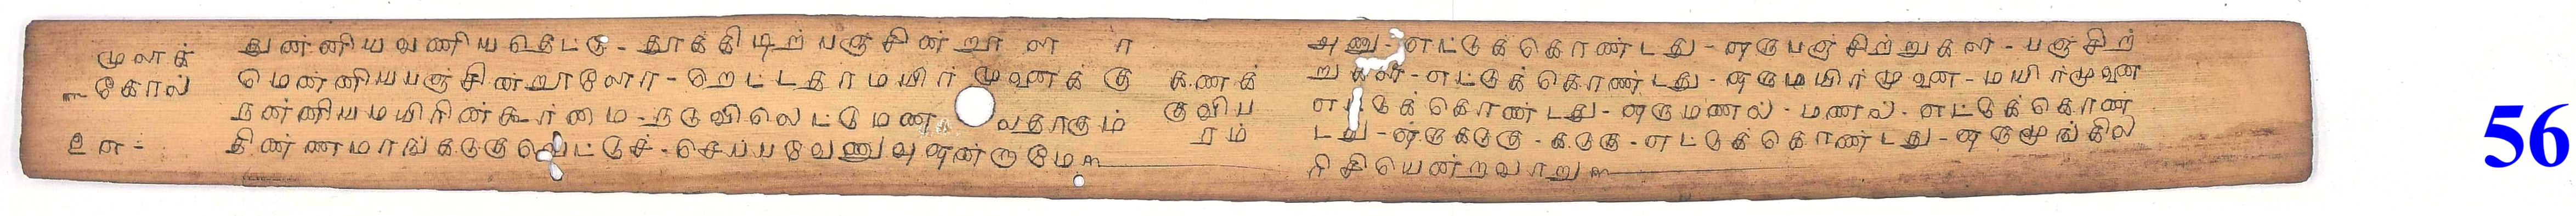 முளக்
கோல்
உஎ-
துண்ணியவணியவெட்டு-தூக்கிடிற்பஞ்சின்றூளா
மெண்ணியபஞ்சின்றூளோர-றெட்டதாமயிர்முவனக்கு
நண்ணியமயிரின்கூர்மை-நடுவிலெட்டுமணலதாகும்
திண்ணமாங்கடுகுவெட்டுச்-செய்யவேணுவுளன்ருமே
கணக்
குவிப
ரம்
அணு-எட்டுக்கொண்டது-ஒருபஞ்சிற்றுகள்-பஞ்சிற்
றுகள்-எட்டுக்கொண்டது-ஒருமயிர்முவன-மயிர்முவன
எட்டுக்கொண்டது-ஒருமணல்-மணல்-எட்டுக்கொண்
டது-ஒருகடுகு-கடுகு-எட்டுக்கொண்டது-ஒருமூங்கில
ரிசியென்றவாறு
56